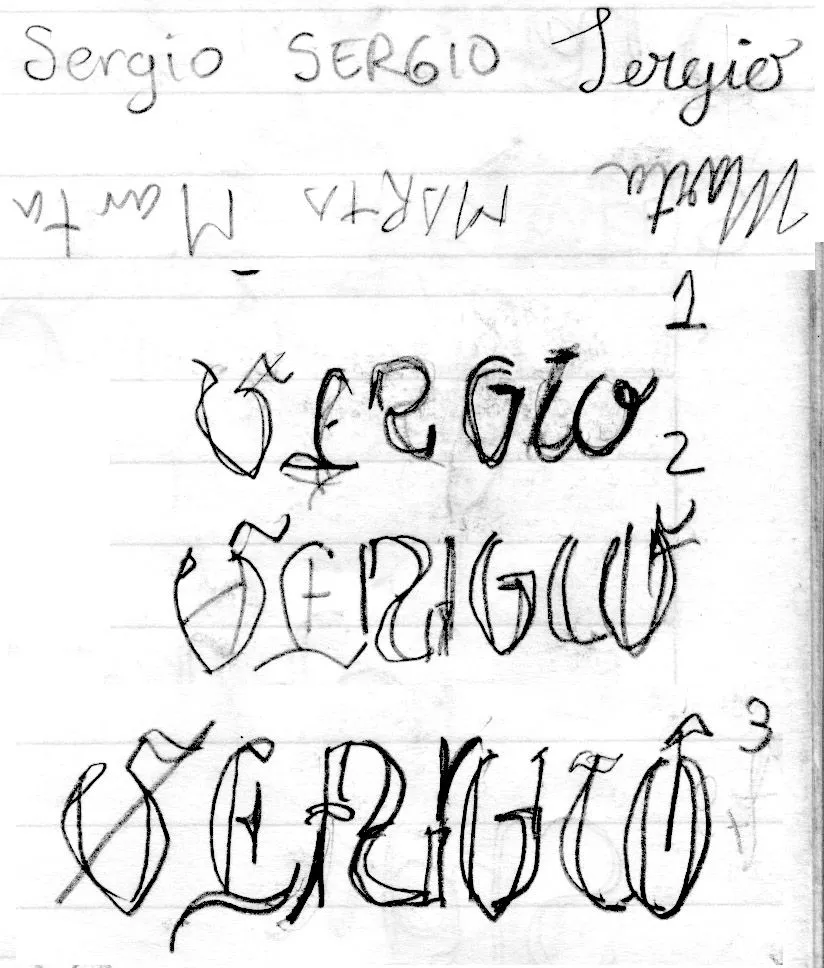 Sergio SERGIO Sergio
Marta MARTA Marta
1
SERGIO
2
SERGIO
3
SERGIO